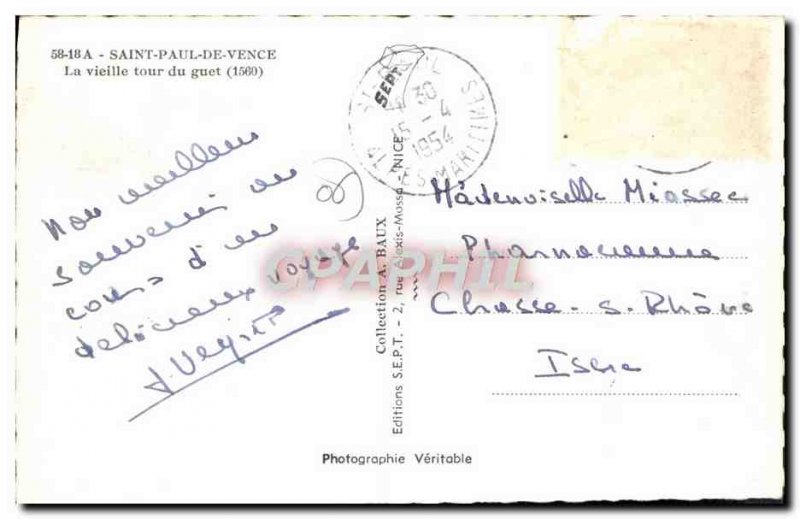 58-18 A - SAINT-PAUL-DE-VENCE
La vieille tour du guet (1560)
Mon meilleur
souvenir au
cours d'un
délicieux voyage
SEPT
30
15 - 4
1954
ALPES MARITIMES
Collection A. BAUX
Editions S.E.P.T. - 2, rue Alexis-Mossa - NICE
Mademoiselle Miossec
Pharmacienne
Chasse-s-Rhône
Isère
CPAPHIL
Photographie Véritable